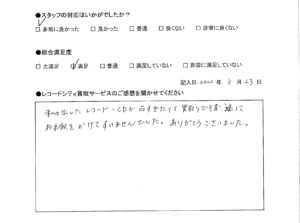 ●スタッフの対応はいかがでしたか？
☑非常に良かった □良かった □普通 □良くない □非常に良くない
●総合満足度
□大満足 ☑満足 □普通 □満足していない □非常に満足していない
記入日：2022年 3月23日
●レコードシティ買取サービスのご感想を聞かせてください
私の出したレコード・CDが古すぎたりで買取りできず逆に
お手数をかけてすいませんでした。ありがとうございました。